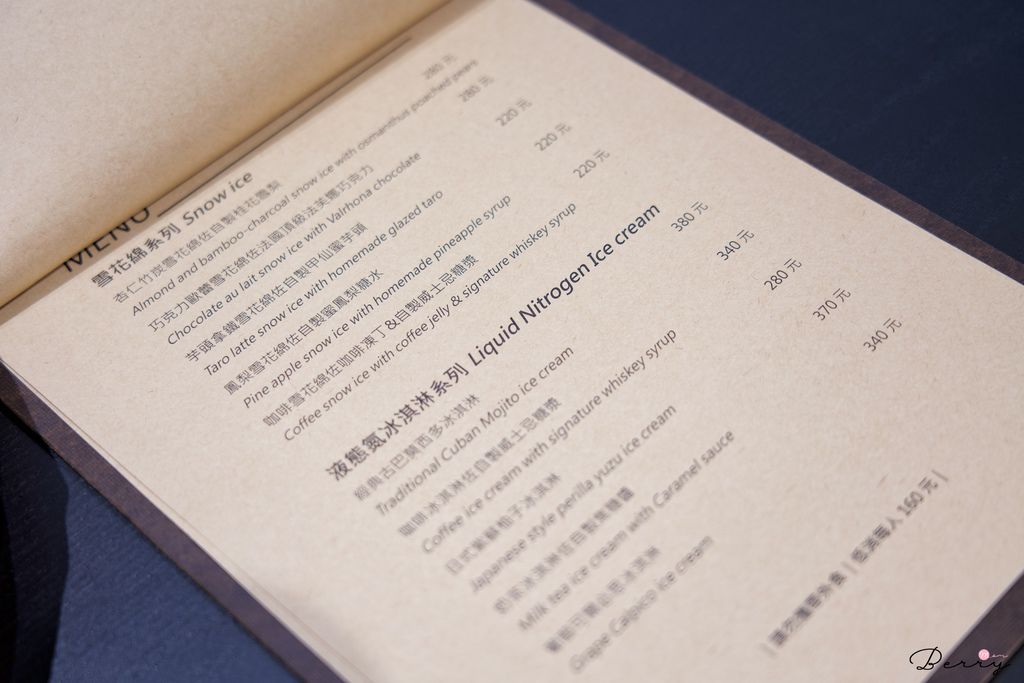 MENU
雪花綿系列 Snow ice
杏仁竹炭雪花綿佐自製桂花雪梨 280 元
Almond and bamboo-charcoal snow ice with osmanthus poached pears
巧克力歐蕾雪花綿佐法國頂級法芙娜巧克力 280 元
Chocolate au lait snow ice with Valrhona chocolate
芋頭拿鐵雪花綿佐自製甲仙蜜芋頭 220 元
Taro latte snow ice with homemade glazed taro
鳳梨雪花綿佐自製蜜鳳梨糖水 220 元
Pine apple snow ice with homemade pineapple syrup
咖啡雪花綿佐咖啡凍丁&自製威士忌糖漿 220 元
Coffee snow ice with coffee jelly & signature whiskey syrup
液態氮冰淇淋系列 Liquid Nitrogen Ice cream
經典古巴莫西多冰淇淋 380 元
Traditional Cuban Mojito ice cream
咖啡冰淇淋佐自製威士忌糖漿 340 元
Coffee ice cream with signature whiskey syrup
日式紫蘇柚子冰淇淋 280 元
Japanese style perilla yuzu ice cream
奶茶冰淇淋佐自製焦糖醬 370 元
Milk tea ice cream with Caramel sauce
葡萄可爾必思冰淇淋 340 元
Grape Calpico ice cream
| 請勿攜帶外食 | 低消每人 160 元 |
Berry